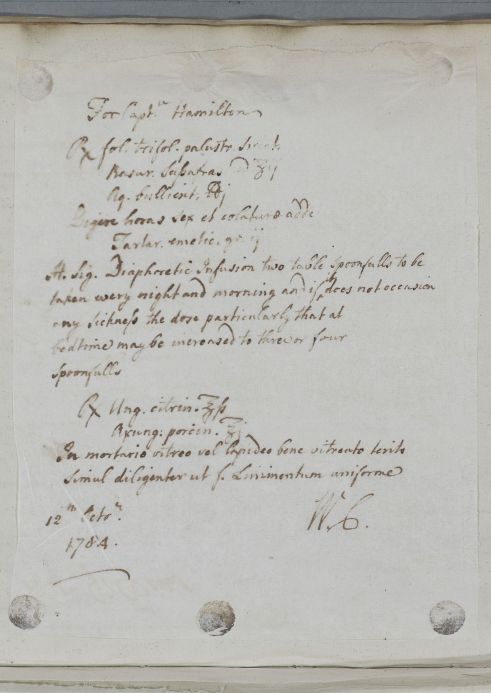 For Capt.n Hamilton
℞ fol. trifol. palustr. sicat.
Rasur. Saſsafras āā ʒij
Aq. bullient. ℔j
Digere horas sex et colaturæ adde
Tartar. emetic. gr. ij
A. Sig. Diaphoretic Infusion two table Spoonfulls to be
taken every night and morning and if does not occasion
any Sickneſs the dose particularly that at
bedtime may be increased to three or four
Spoonfulls
℞ Ung. citrin. ʒſs
Axung: porcin. ʒj
In mortario vitreo vel lapideo bene vitreato terito
simul diligenter ut f. Linimentum uniforme
12th Octor.
W. C.
1784.